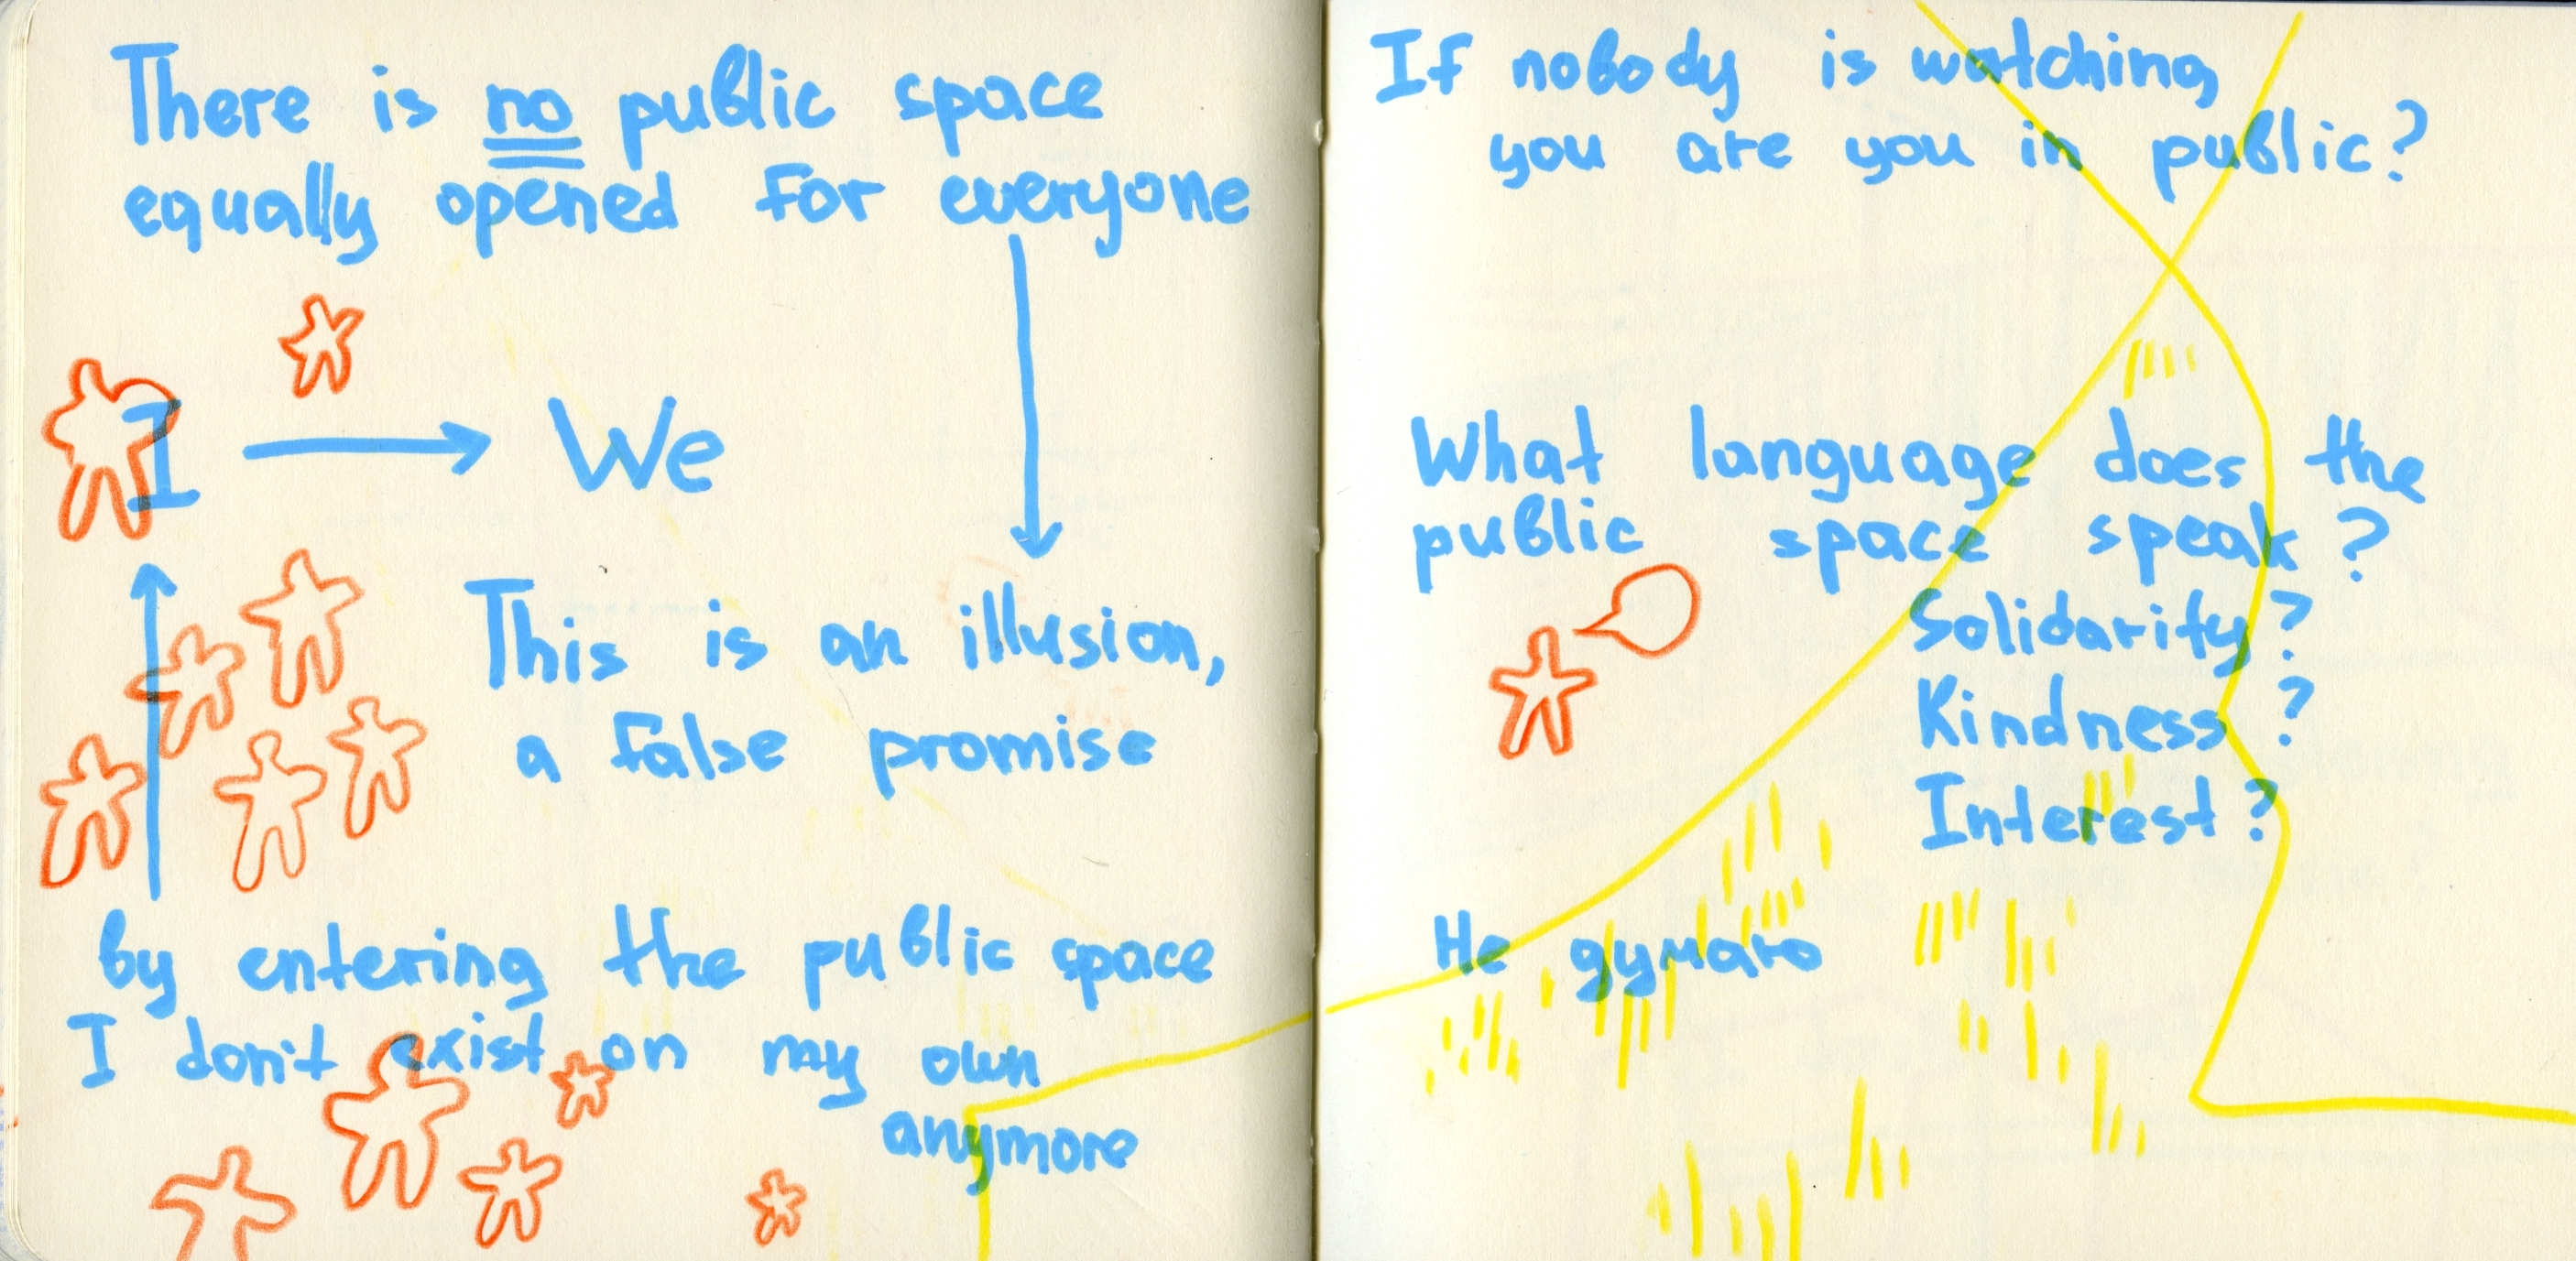 There is no public space
equally opened for everyone
I → We
This is an illusion,
a false promise
by entering the public space
I don't exist on my own
anymore
If nobody is watching
you are you in public?
What language does the
public space speak?
Solidarity?
Kindness?
Interest?
Не думаю